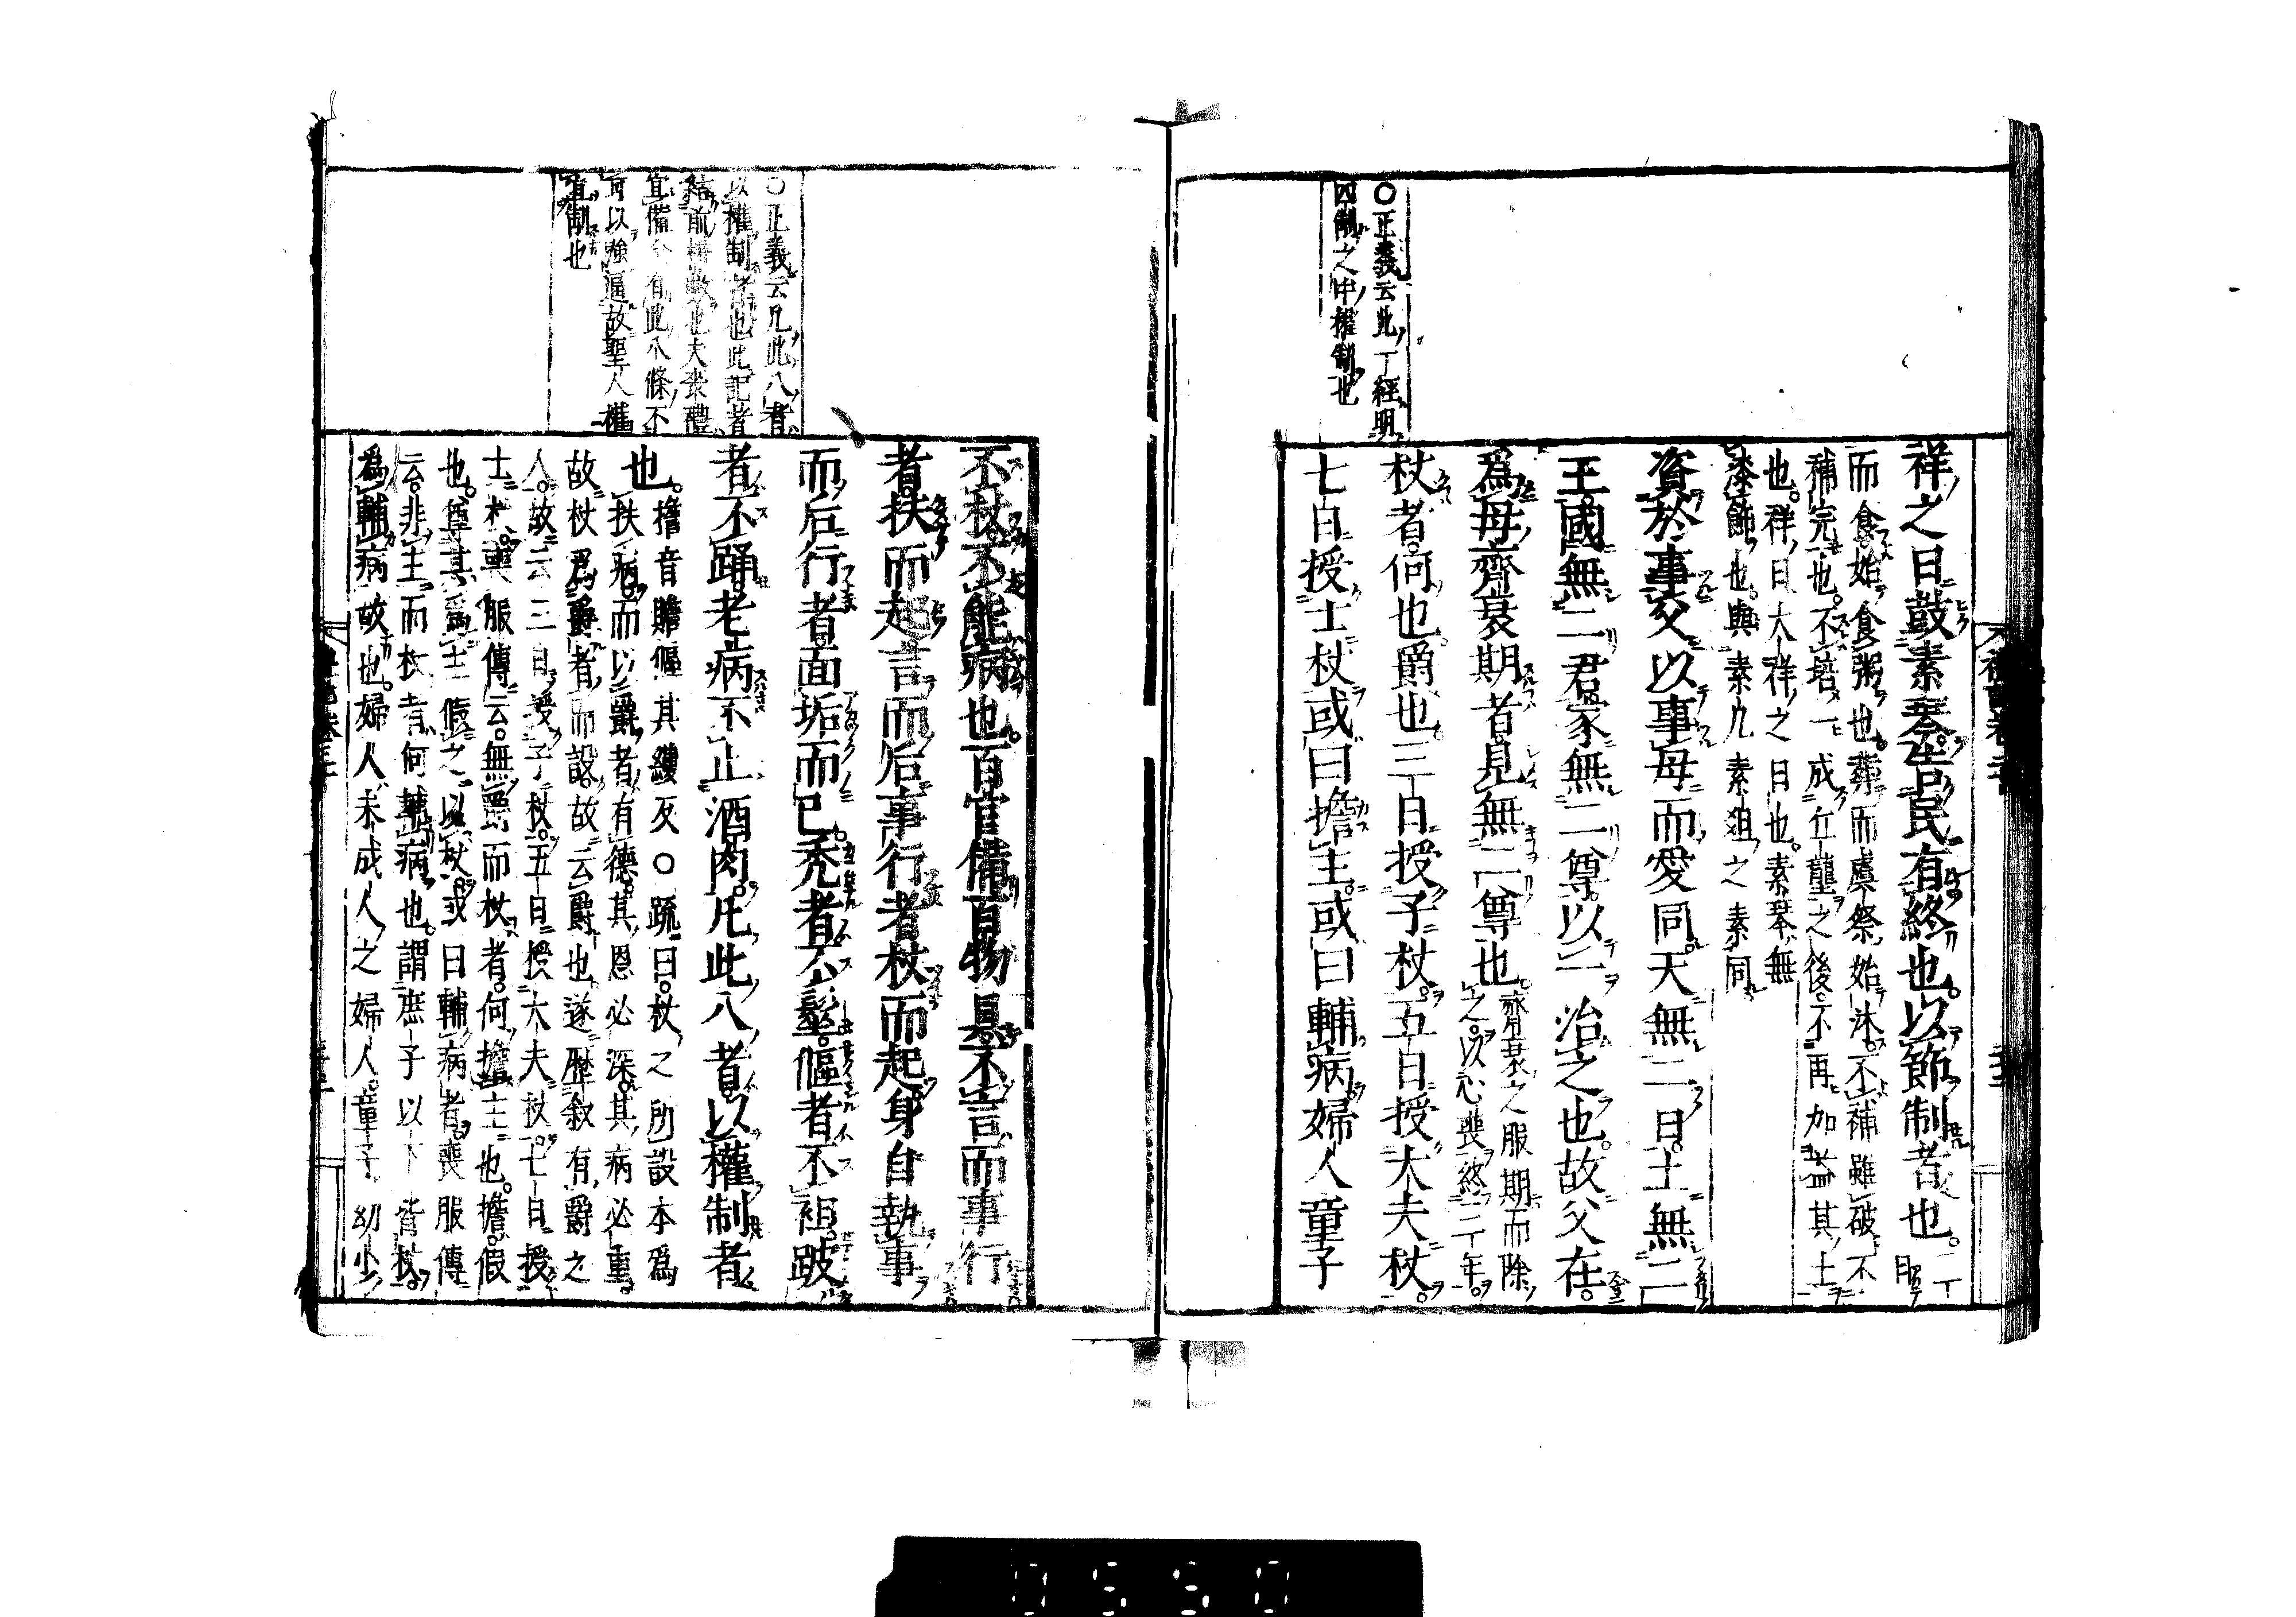 〇正義云此一經明
四制之中權制也
祥之日鼓素琴告民有終也以節制者也三日
而食始食粥也葬而虞祭始沐不補雖破不
補完也不培一成丘壟之後不再加益其土
也祥日大祥之日也素琴無
漆飾也與素几素俎之素同
資於事父以事母而愛同天無二日土無二
王國無二君家無二尊以一治之也故父在
爲母齊衰期者見無二尊也齊衰之服期而除
之以心喪終三年
杖者何也爵也三日授子杖五日授大夫杖
七日授士杖或曰擔主或曰輔病婦人童子
〇正義云凡此八者
以權制者也此記者
結前權數也夫喪禮
宜備今有此八條不
可以強逼故聖人權
宜制也
不杖不能病也百官備百物具不言而事行
者扶而起言而后事行者杖而起身自執事
而后行者面垢而已禿者不髽傴者不袒跛
者不踊老病不止酒肉凡此八者以權制者
也擔音贍傴其縷反〇疏曰杖之所設本爲
扶病而以爵者有德其恩必深其病必重
故杖爲爵者而設故云爵也遂歷敘有爵之
人故云三日授子杖五日授大夫杖七日授
士杖喪服傳云無爵而杖者何擔主也擔假
也尊其爲主假之以杖或曰輔病者喪服傳
云非主而杖者何輔病也謂庶子以下皆杖
爲輔病故也婦人未成人之婦人童子幼少